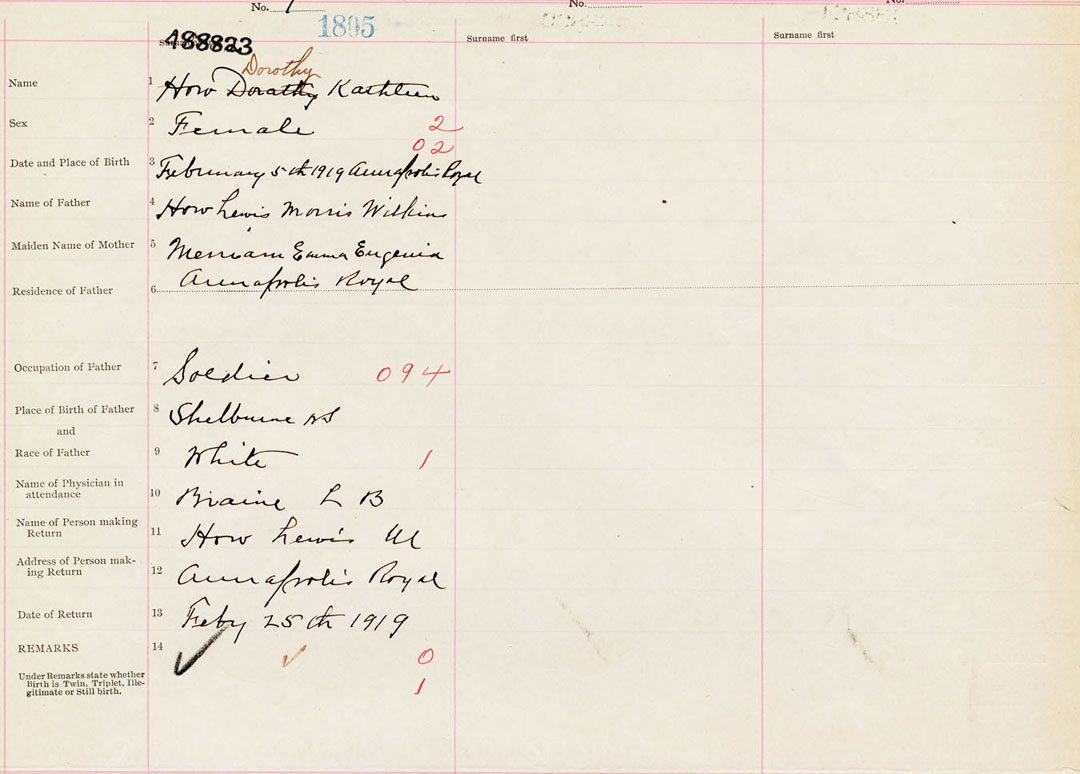 No. 1
No.
No.
1805
488823
Surname first
Surname first
Dorothy
Name 1 How Dorathy Kathleen
Sex 2 Female 2
02
Date and Place of Birth 3 February 5th 1919 Annapolis Royal
Name of Father 4 How Lewis Morris Wilkins
Maiden Name of Mother 5 Merriam Emma Eugenia
Residence of Father 6 Annapolis Royal
Occupation of Father 7 Soldier 094
Place of Birth of Father 8 Shelburne NS
and
Race of Father 9 White 1
Name of Physician in
attendance 10 Braine L B
Name of Person making
Return 11 How Lewis M
Address of Person mak-
ing Return 12 Annapolis Royal
Date of Return 13 Feby 25th 1919
REMARKS 14
0
Under Remarks state whether
Birth is Twin, Triplet, Ille-
gitimate or Still birth. 1